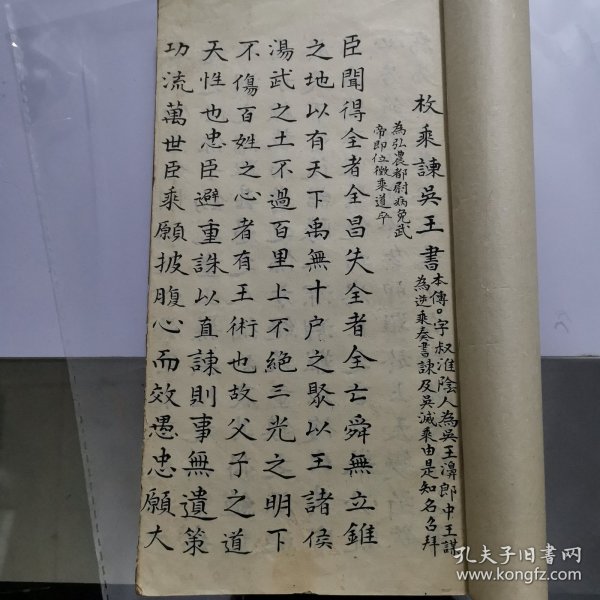 枚乘諫吳王書
本傳。字叔淮陰人為吳王濞郎中王謀
為逆乘奏書諫及吳滅乘由是知名召拜
為弘農都尉病免武
帝即位徵乘道卒
臣聞得全者全昌失全者全亡舜無立錐
之地以有天下禹無十户之聚以王諸侯
湯武之土不過百里上不絕三光之明下
不傷百姓之心者有王術也故父子之道
天性也忠臣避重誅以直諫則事無遺策
功流萬世臣乘願披腹心而效愚忠願大
孔夫子旧书网
www.kongfz.com